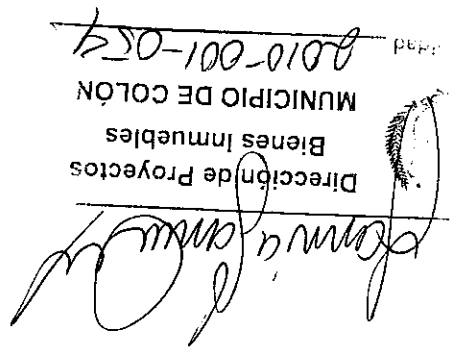 Dirección de Proyectos
Bienes Inmuebles
MUNICIPIO DE COLÓN
2010-001-054